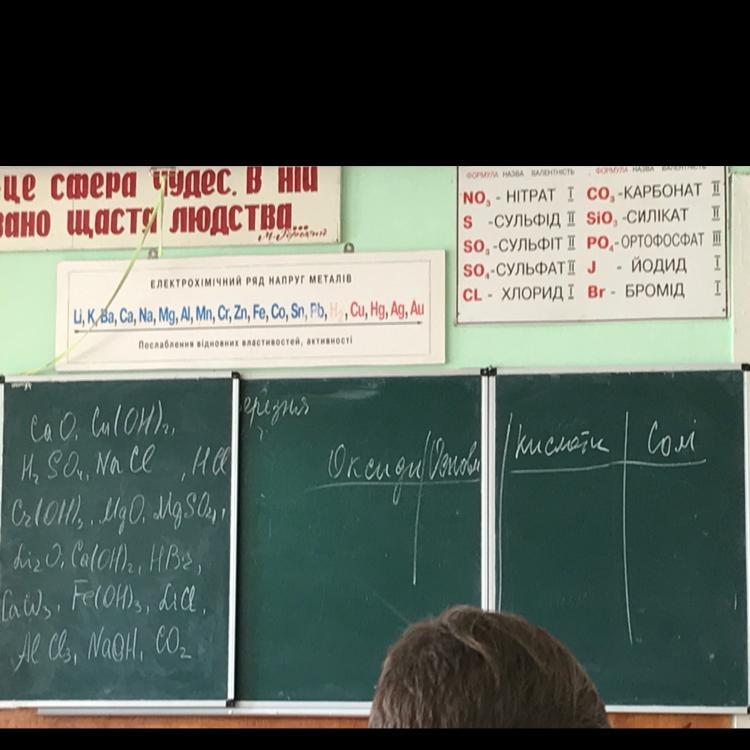 це сфера чудес. В ній
вано щастя людства...
ФОРМУЛА НАЗВА ВАЛЕНТНІСТЬ ФОРМУЛА НАЗВА ВАЛЕНТНІСТЬ
NO₃ - НІТРАТ I CO₃ -КАРБОНАТ II
S -СУЛЬФІД II SiO₃ -СИЛІКАТ II
SO₃ -СУЛЬФІТ II PO₄ -ОРТОФОСФАТ III
SO₄ -СУЛЬФАТ II J - ЙОДИД I
CL - ХЛОРИД I Br - БРОМІД I
ЕЛЕКТРОХІМІЧНИЙ РЯД НАПРУГ МЕТАЛІВ
Li, K, Ba, Ca, Na, Mg, Al, Mn, Cr, Zn, Fe, Co, Sn, Pb, H₂, Cu, Hg, Ag, Au
Послаблення відновних властивостей, активності
CaO, Cu(OH)₂,
H₂SO₄, NaCl , HCl
Cr(OH)₃, MgO, MgSO₄,
Li₂O, Ca(OH)₂, HBr,
Fe(OH)₃, LiCl,
AlCl₃, NaOH, CO₂
ерезня
Оксиди Основи
Кислоти Солі